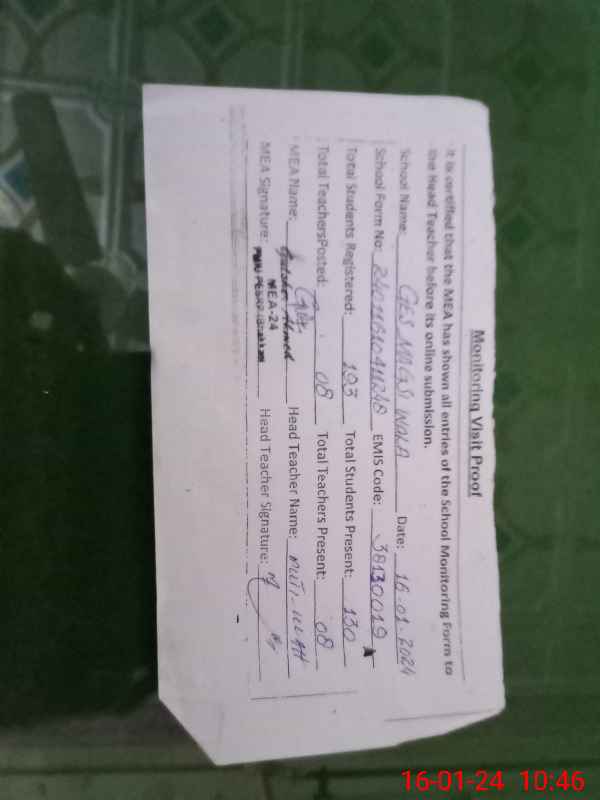 Monitoring Visit Proof
It is certified that the MEA has shown all entries of the School Monitoring Form to
the Head Teacher before its online submission.
School Name: GES MAGSI WALA Date: 16-01-2024
School Form No: EMIS Code: 38130019
Total Students Registered: 193 Total Students Present: 130
Total TeachersPosted: 08 Total Teachers Present: 08
MEA Name: Ahmed Head Teacher Name: MUTI-ULLAH
MEA Signature: MEA-24 Head Teacher Signature:
16-01-24 10:46